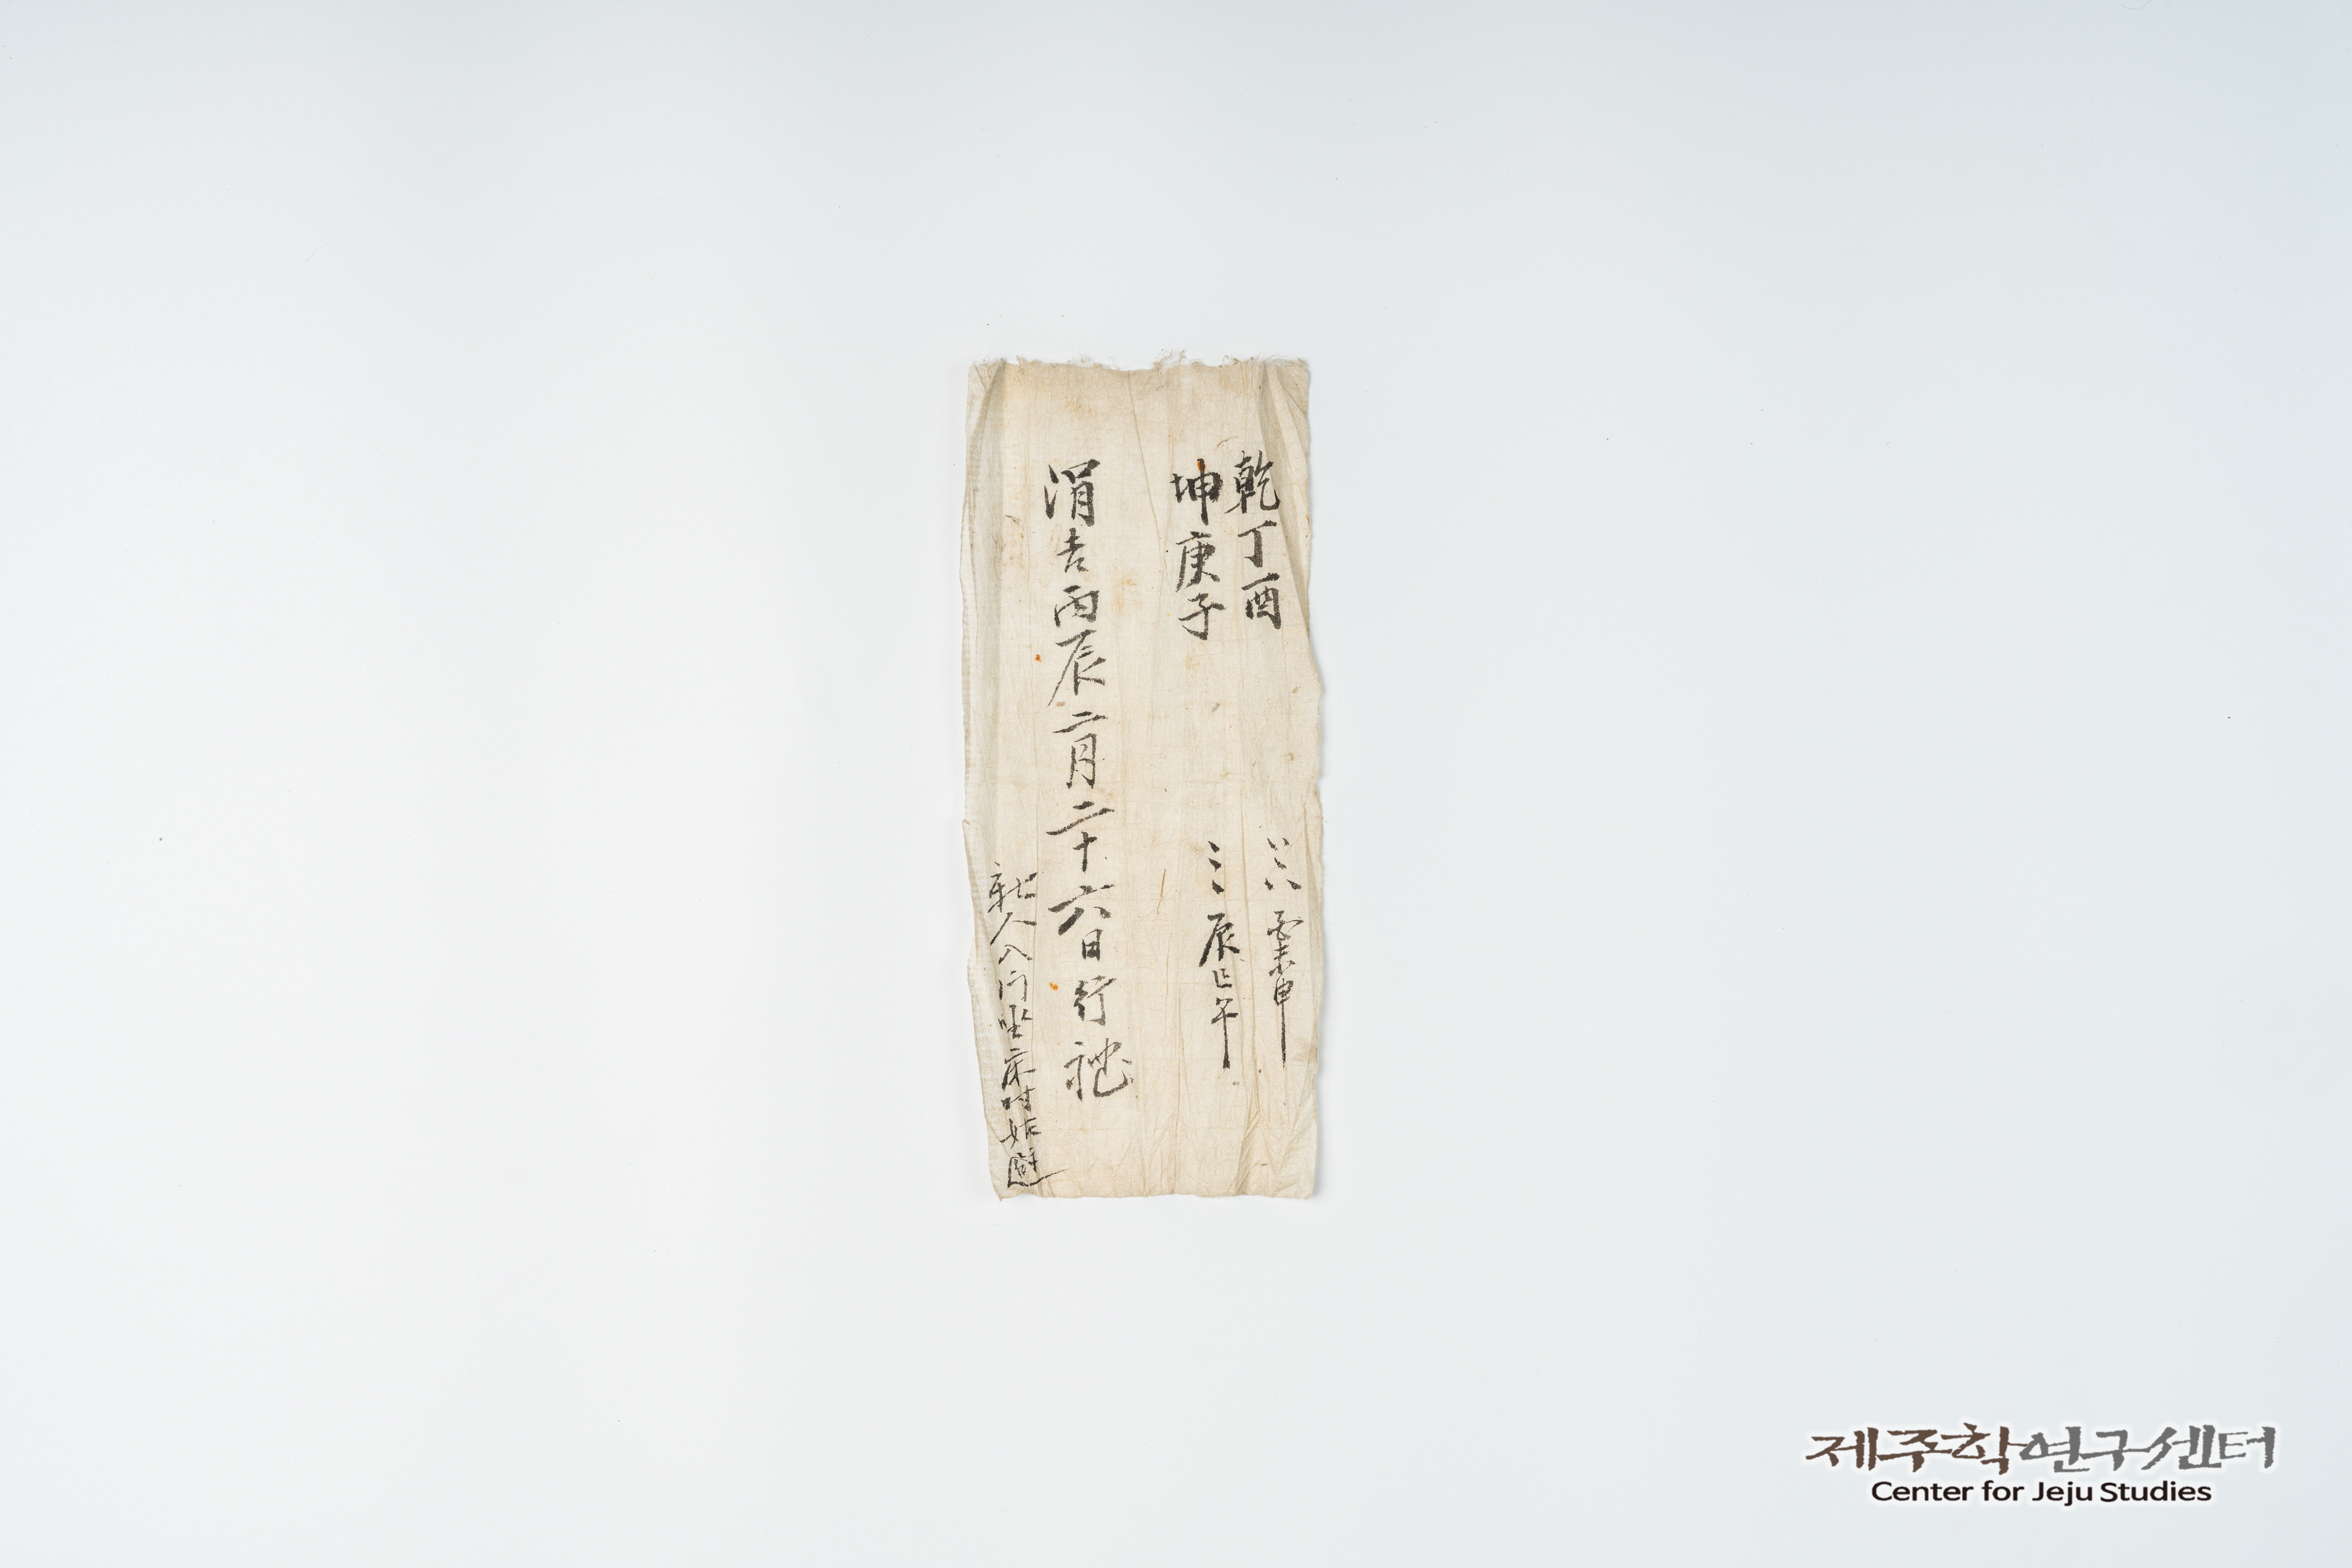 乾丁酉
坤庚子 辰巳午
涓吉丙辰二月二十六日行禮
新人入门坐床时姑避
제주학연구센터
Center for Jeju Studies